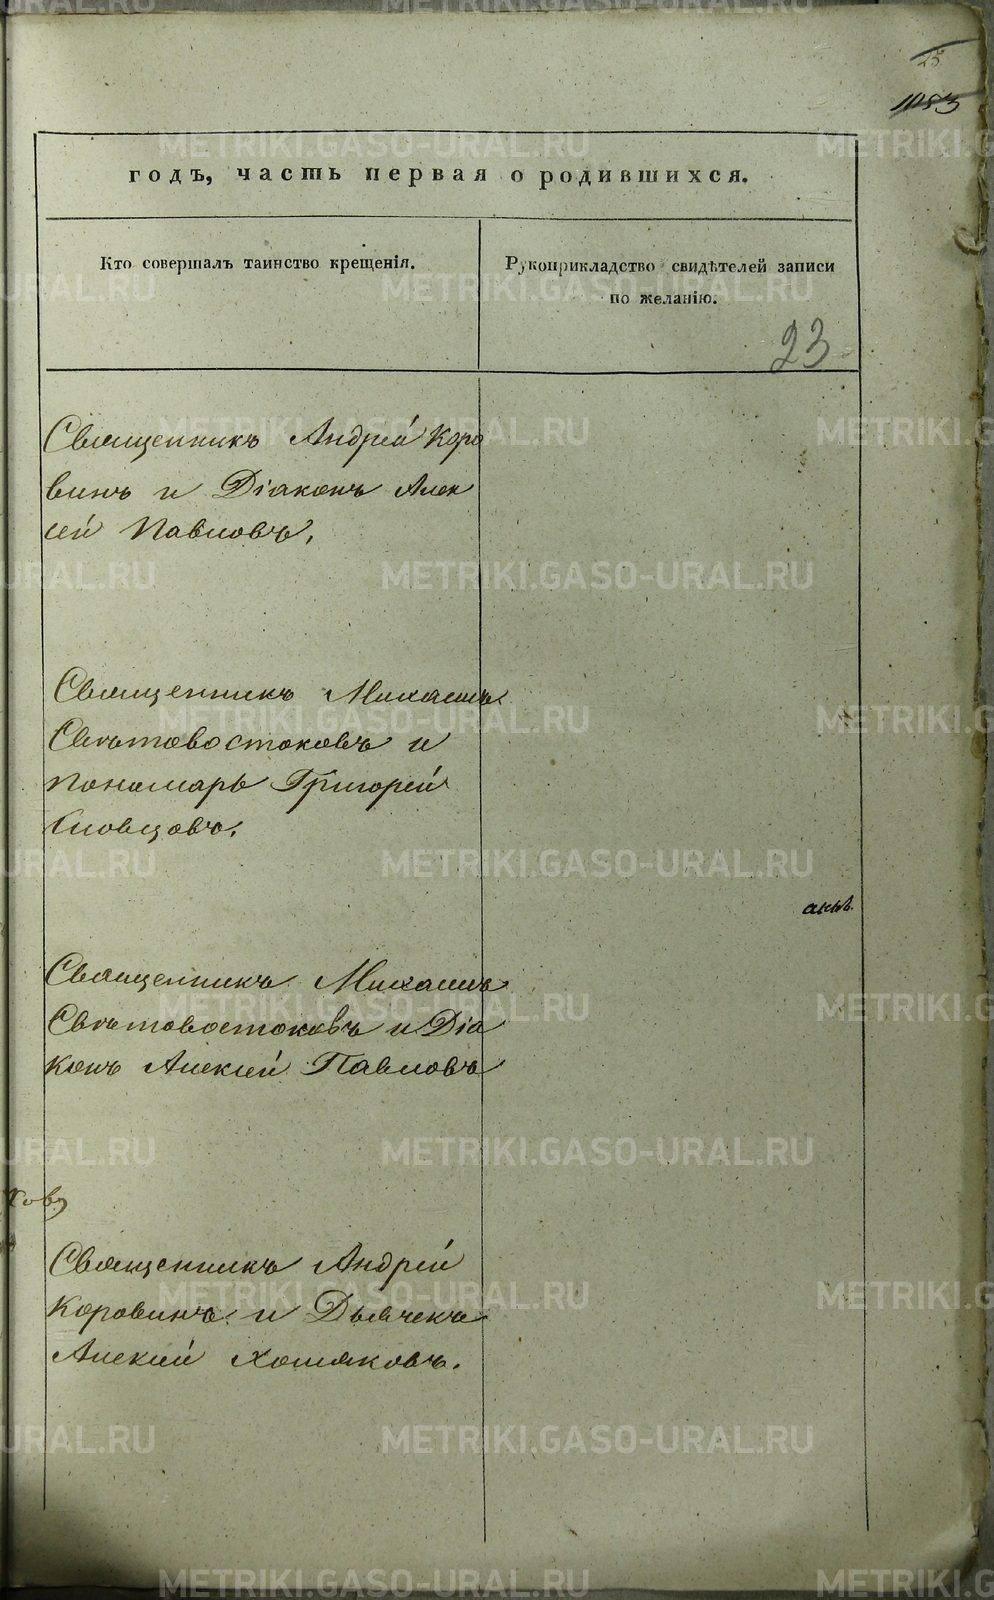 1083
годъ, часть первая о родившихся.
Кто совершалъ таинство крещенія.
Рукоприкладство свидѣтелей записи
по желанію.
23
Священникъ Андрей Коро
винъ и Діаконъ Алек
сей Павловъ.
Священникъ Михаилъ
Свѣтовостоковъ и
пономарь Григорей
Словцовъ.
Священникъ Михаилъ
Свѣтовостоковъ и Діа
конъ Алексей Павловъ
Священникъ Андрей
Коровинъ и Дьячекъ
Алексий Хомяковъ.
METRIKI.GASO-URAL.RU